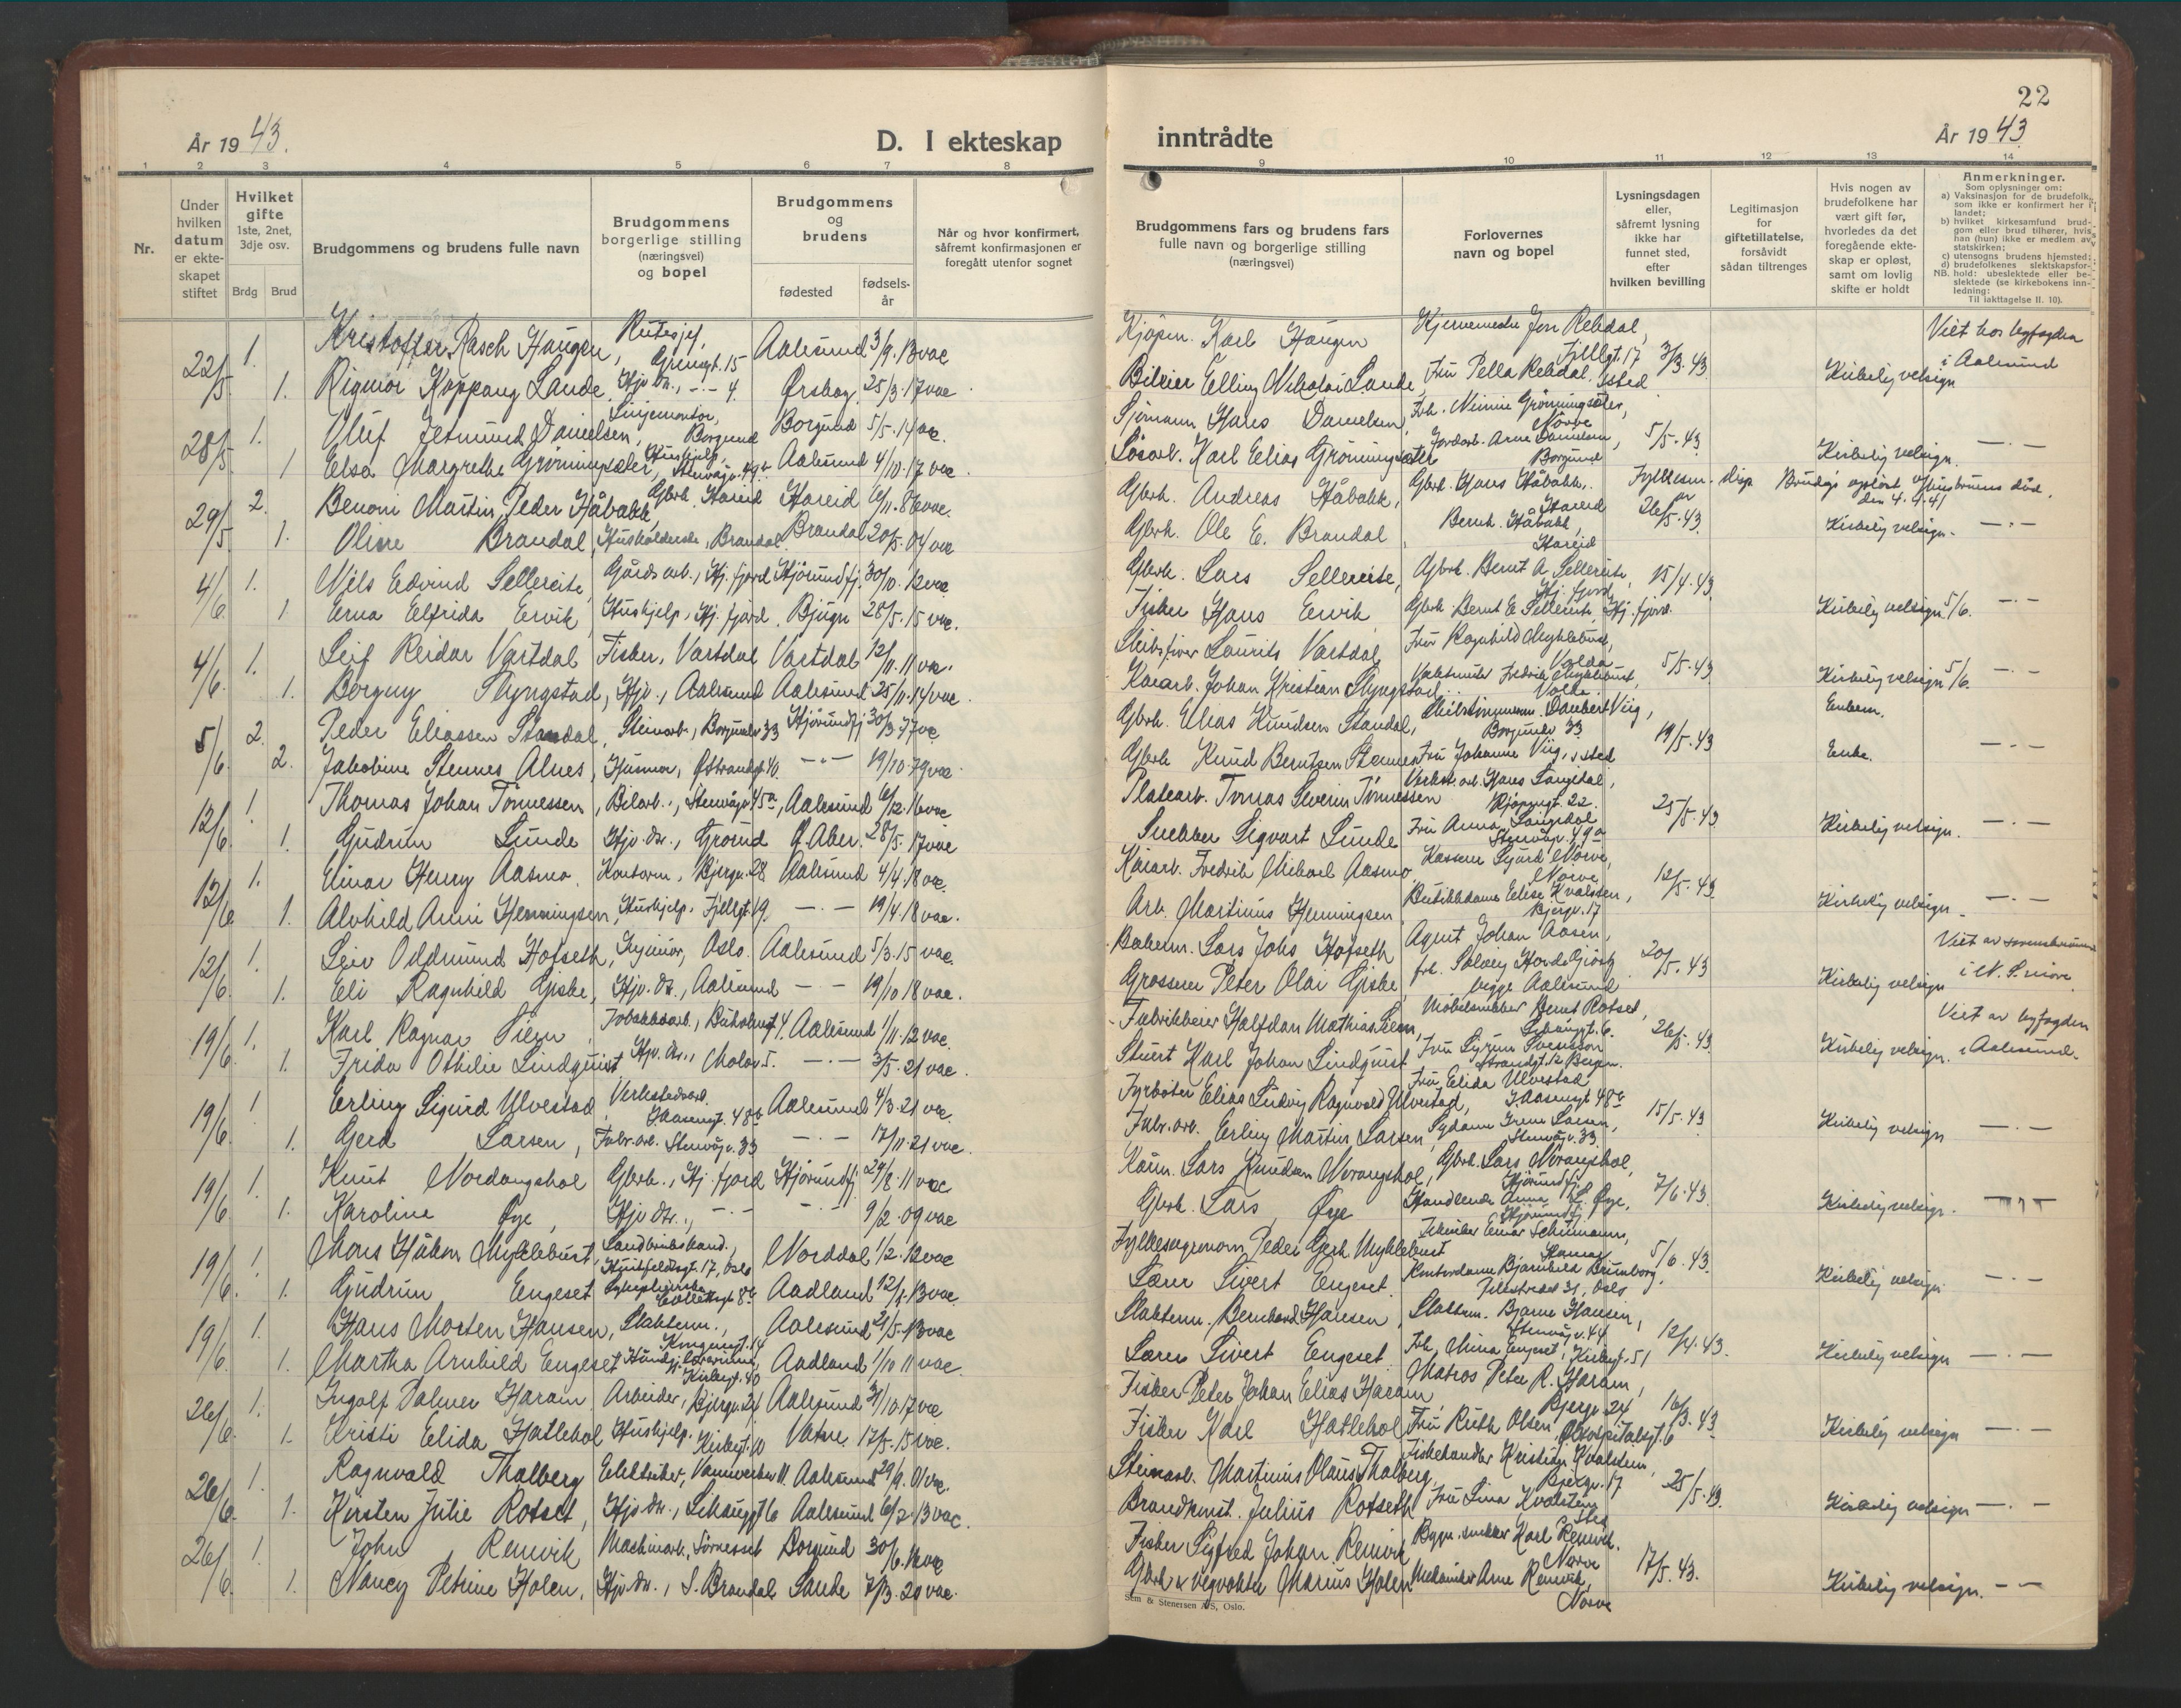 22
År 1943.
D. I ekteskap
inntrådte
År 1943
1 2 3 4 5 6 7 8
9 10 11 12 13 14
Nr.
Under hvilken datum er ekteskapet stiftet
Hvilket gifte 1ste, 2net, 3dje osv.
Brdg Brud
Brudgommens og brudens fulle navn
Brudgommens borgerlige stilling (næringsvei) og bopel
Brudgommens og brudens
fødested
fødsels-år
Når og hvor konfirmert, såfremt konfirmasjonen er foregått utenfor sognet
Brudgommens fars og brudens fars fulle navn og borgerlige stilling (næringsvei)
Forlovernes navn og bopel
Lysningsdagen eller, såfremt lysning ikke har funnet sted, efter hvilken bevilling
Legitimasjon for giftetillatelse, forsåvidt sådan tiltrenges
Hvis nogen av brudefolkene har vært gift før, hvorledes da det foregående ekteskap er opløst, samt om lovlig skifte er holdt
Anmerkninger.
Som oplysninger om:
a) Vaksinasjon for de brudefolk, som ikke er konfirmert her i landet;
b) hvilket kirkesamfund brudgom eller brud tilhører, hvis han (hun) ikke er medlem av statskirken;
c) utensogns brudens hjemsted;
d) brudefolkenes slektskapsforhold: ubeslektede eller beslektede (se kirkebokens innledning:
NB.
Til iakttagelse II. 10).
22/5 1. Kristoffer Rasch Haugen, Rutesjef, Aalesund 3/9. 13 vac Kjøpm. Karl Haugen Jon Rekdal, Fjellgt. 17 3/3. 43 Viet hos byfogden i Aalesund
1. Rigmor Koppang Lande, Hjv. dr., -.- 4. Ørskog 25/3. 17 vac Bileier Elling Nikolai Lande, Fru Pella Rekdal. Isted Kirkelig velsign
28/5 1. Oluf Jermund Danielsen, Linjemontør, Borgund Borgund 5/5. 14 vac. Sjømann Hans Danielsen, Frk. Minnie Grønningsæter, Nørve 5/5. 43
1 Elsa Margrethe Grønningsæter, Hushjelp, Aalesund 4/10. 17 vac Løsarb. Karl Elias Grønningsæter Jordarb. Arne Danielsen, Borgund Kirkelig velsign. -.-
29/5 2. Benoni Martin Peder Håbakk, Gbrk. Hareid Hareid 6/11. 86 vac. Gbrk. Andreas Håbakk, Gbrk. Hans Håbakk, Hareid Fylkesm. disp. 26/5. 43 den 4. 4. 41
1. Oline Brandal, Husholderske, Brandal. Brandal 20/5. 04 vac Gbrk. Ole E. Brandal Bernh. Håbakk, Hareid Kirkelig velsign. -.-
4/6 1. Nils Edvind Sellereite, Gårdsarb., Hj. fjord Hjørundfj. 30/10. 12 vac Gbrk. Lars Sellereite, Gbrk. Bernt A Sellereite, Hj. fjord 15/4. 43
1 Erna Elfrida Ervik, Hushjelp, Hj. fjord. Bjugn 28/5. 15 vac. Fisker Hans Ervik Gbrk. Bernt E Sellereite, Hj. fjord. Kirkelig velsign 5/6. -.-
4/6. 1. Leif Reidar Vartdal Fisker, Vartdal Vartdal 12/11. 11 vac. Laurits Vartdal, Fru Ragnhild Myklebust, Volda 5/5. 43
1. Borgny Slyngstad, Hjv., Aalesund Aalesund 25/11. 14 vac. Kaiarb. Johan Kristian Slyngstad Fredrik Myklebust, Volda. Kirkelig velsign 5/6. -.-
5/6 2. Peder Eliassen Standal, Steinarb., Borgundv. 33 Hjørundfj. 30/3. 77 vac Gbrk. Elias Knudsen Standal, Daubert Viig, Borgundv. 33 19/5. 43 Enkem.
2. Jakobine Stennes Alnes, Husmor, Ø. Strandgt. 10. -.- 19/10. 79 vac. Gbrk Knud Berntsen Stennes Fru Johanne Viig, isted Enke. -.-
12/6 1. Thomas Johan Tønnessen, Bilarb., Stenvågv. 45a, Aalesund 6/12. 16 vac Platearb. Tomas Severin Tønnessen Verkst. arb. Hans Langedal, 25/5. 43
1. Gudrun Lunde Hjv. dr., Grorud 28/5. 17 vac Snekker Sigvart Lunde Fru Anna Langedal Stenvågv. 49a Kirkelig velsign. -.-
12/6 1. Einar Henry Aasmo, Kontorm., Bjergv. 28 Aalesund 4/4. 18 vac. Kaiarb. Fredrik Mikael Aasmo Kasserer Sigurd Nørve, Nørve 12/5. 43
1. Alvhild Anni Henningsen, Hushjelp. Fjellgt. 19 -.- 19/4. 18 vac. Arb. Martinus Henningsen Butikkdame Elise Kvalsten, Bjergv. 17 Kirkelig velsign -.-
12/6. 1. Leiv Oddmund Hofseth, Ingeniør, Oslo. Aalesund 5/3. 15 vac. Lars Johs Hofseth Agent Johan Aasen, 20/5. 43
1. Eli Ragnhild Giske, Hjv. dr., Aalesund -.- 19/10 18 vac. Grosserer Peter Olai Giske, begge Aalesund Kirkelig velsign
19/6. 1. Karl Ragnar Siem, Aalesund 1/11. 12 vac. Fabrikkeier Halfdan Mathias Siem, Møbelsnekker Bernt Rotset, 26/5. 43 Viet av byfogden i Aalesund.
1. Frida Othilie Lindquist, Hjv. dr., Molov 5. -.- 3/5. 21 vac. Stuert Karl Johan Lindquist Strandgt. 12 Bergen. Kirkelig velsign.
19/6. 1 Erling Sigurd Ulvestad, Verkstedarb. I. Aasengt. 48b Aalesund 4/3. 21 vac. Fyrbøter Elias Ludvig Ragnvald Ulvestad, Fru Elida Ulvestad I. Aasengt 48b 15/5. 43
1. Gerd Larsen, Fabr. arb. Stenvågv. 33 -.- 17/11. 21 vac. Fabr. arb. Erling Martin Larsen, Sydame Irene Larsen, Stenvågv. 33. Kirkelig velsign -.-
19/6. 1. Knut Nordangshol Gbrk., Hj. fjord Hjørundfj. 29/8. 11 vac Lars Knudsen Norangshol, Gbrk. Lars Norangshol, Hjørundfj. 7/6. 43
1. Karoline Øye, Hjv. dr., -.- -.- 9/2. 09 vac Gbrk. Lars Øye Handlende Anna L. Øye, Hjørundfj. Kirkelig velsign. -.-
19/6. 1. Mons Håkon Myklebust, Landbrukskand., Huitfeldtsgt. 17, Oslo Norddal 1/2. 12 vac Fylkesagronom Peder Gerh. Myklebust Einar Schumann, Hamar 5/6. 43
1. Gudrun Engeset Aadland 13 vac. Lærer Sivert Engeset. Kontordame Bjarnhild Brunborg, Pilestredet 31, Oslo Kirkelig velsign -.-
19/6. 1. Hans Morten Hansen, Slakterm., Kongensgt. 14 Aalesund 21/5. 13 vac Slakterm. Bernhard Hansen, Slakterm. Bjarne Hansen, Stenvågv. 44 12/4. 43.
1. Martha Arnhild Engeset Kirkegt. 40 Aadland 1/10 11 vac. Lærer Sivert Engeset Frk. Mina Engeset, Kirkegt. 51 Kirkelig velsign -.-
26/6. 1. Ingolf Palmer Haram Arbeider, Bjergv. 24 Aalesund 31/10. 17 vac Fisker Peter Johan Elias Haram, Matros Peter R. Haram, Bjergv. 24 16/3. 43
1. Kristi Elida Hatlehol Hushjelp. Kirkegt. 10 Vatne. 17/5. 15 vac. Fisker Karl Hatlehol Fru Ruth Olsen, Kirkelig velsign -.-
26/6. 1. Ragnvald Thalberg Elektriker, Aalesund 29/9. 01 vac. Steinarb. Martinius Olaus Thalberg, Fiskehandler Kristian Kvalsten, Bjergv. 17 25/5. 43.
1. Kirsten Julie Rotset, Hjv. dr., Schaugt 6 Aalesund 6/2. 13 vac. Brandkonst. Julius Rotseth Fru Lina Kvalsten, sted Kirkelig velsign -.-
26/6. 1. John Remvik Maskinarb., Sørnesset Borgund 30/6. 16 vac Fisker Sigfred Johan Remvik Bygn. snekker Karl Remvik, Nørve 17/5. 43.
1. Nancy Petrine Holen, Hjv. dr., S. Brandal Sande 7/3. 20 vac. Gbrk & vegvokter Marius Holen Mekaniker Arne Remvik, Nørve Kirkelig velsign. -.-
Sem & Stenersen A/S, Oslo.